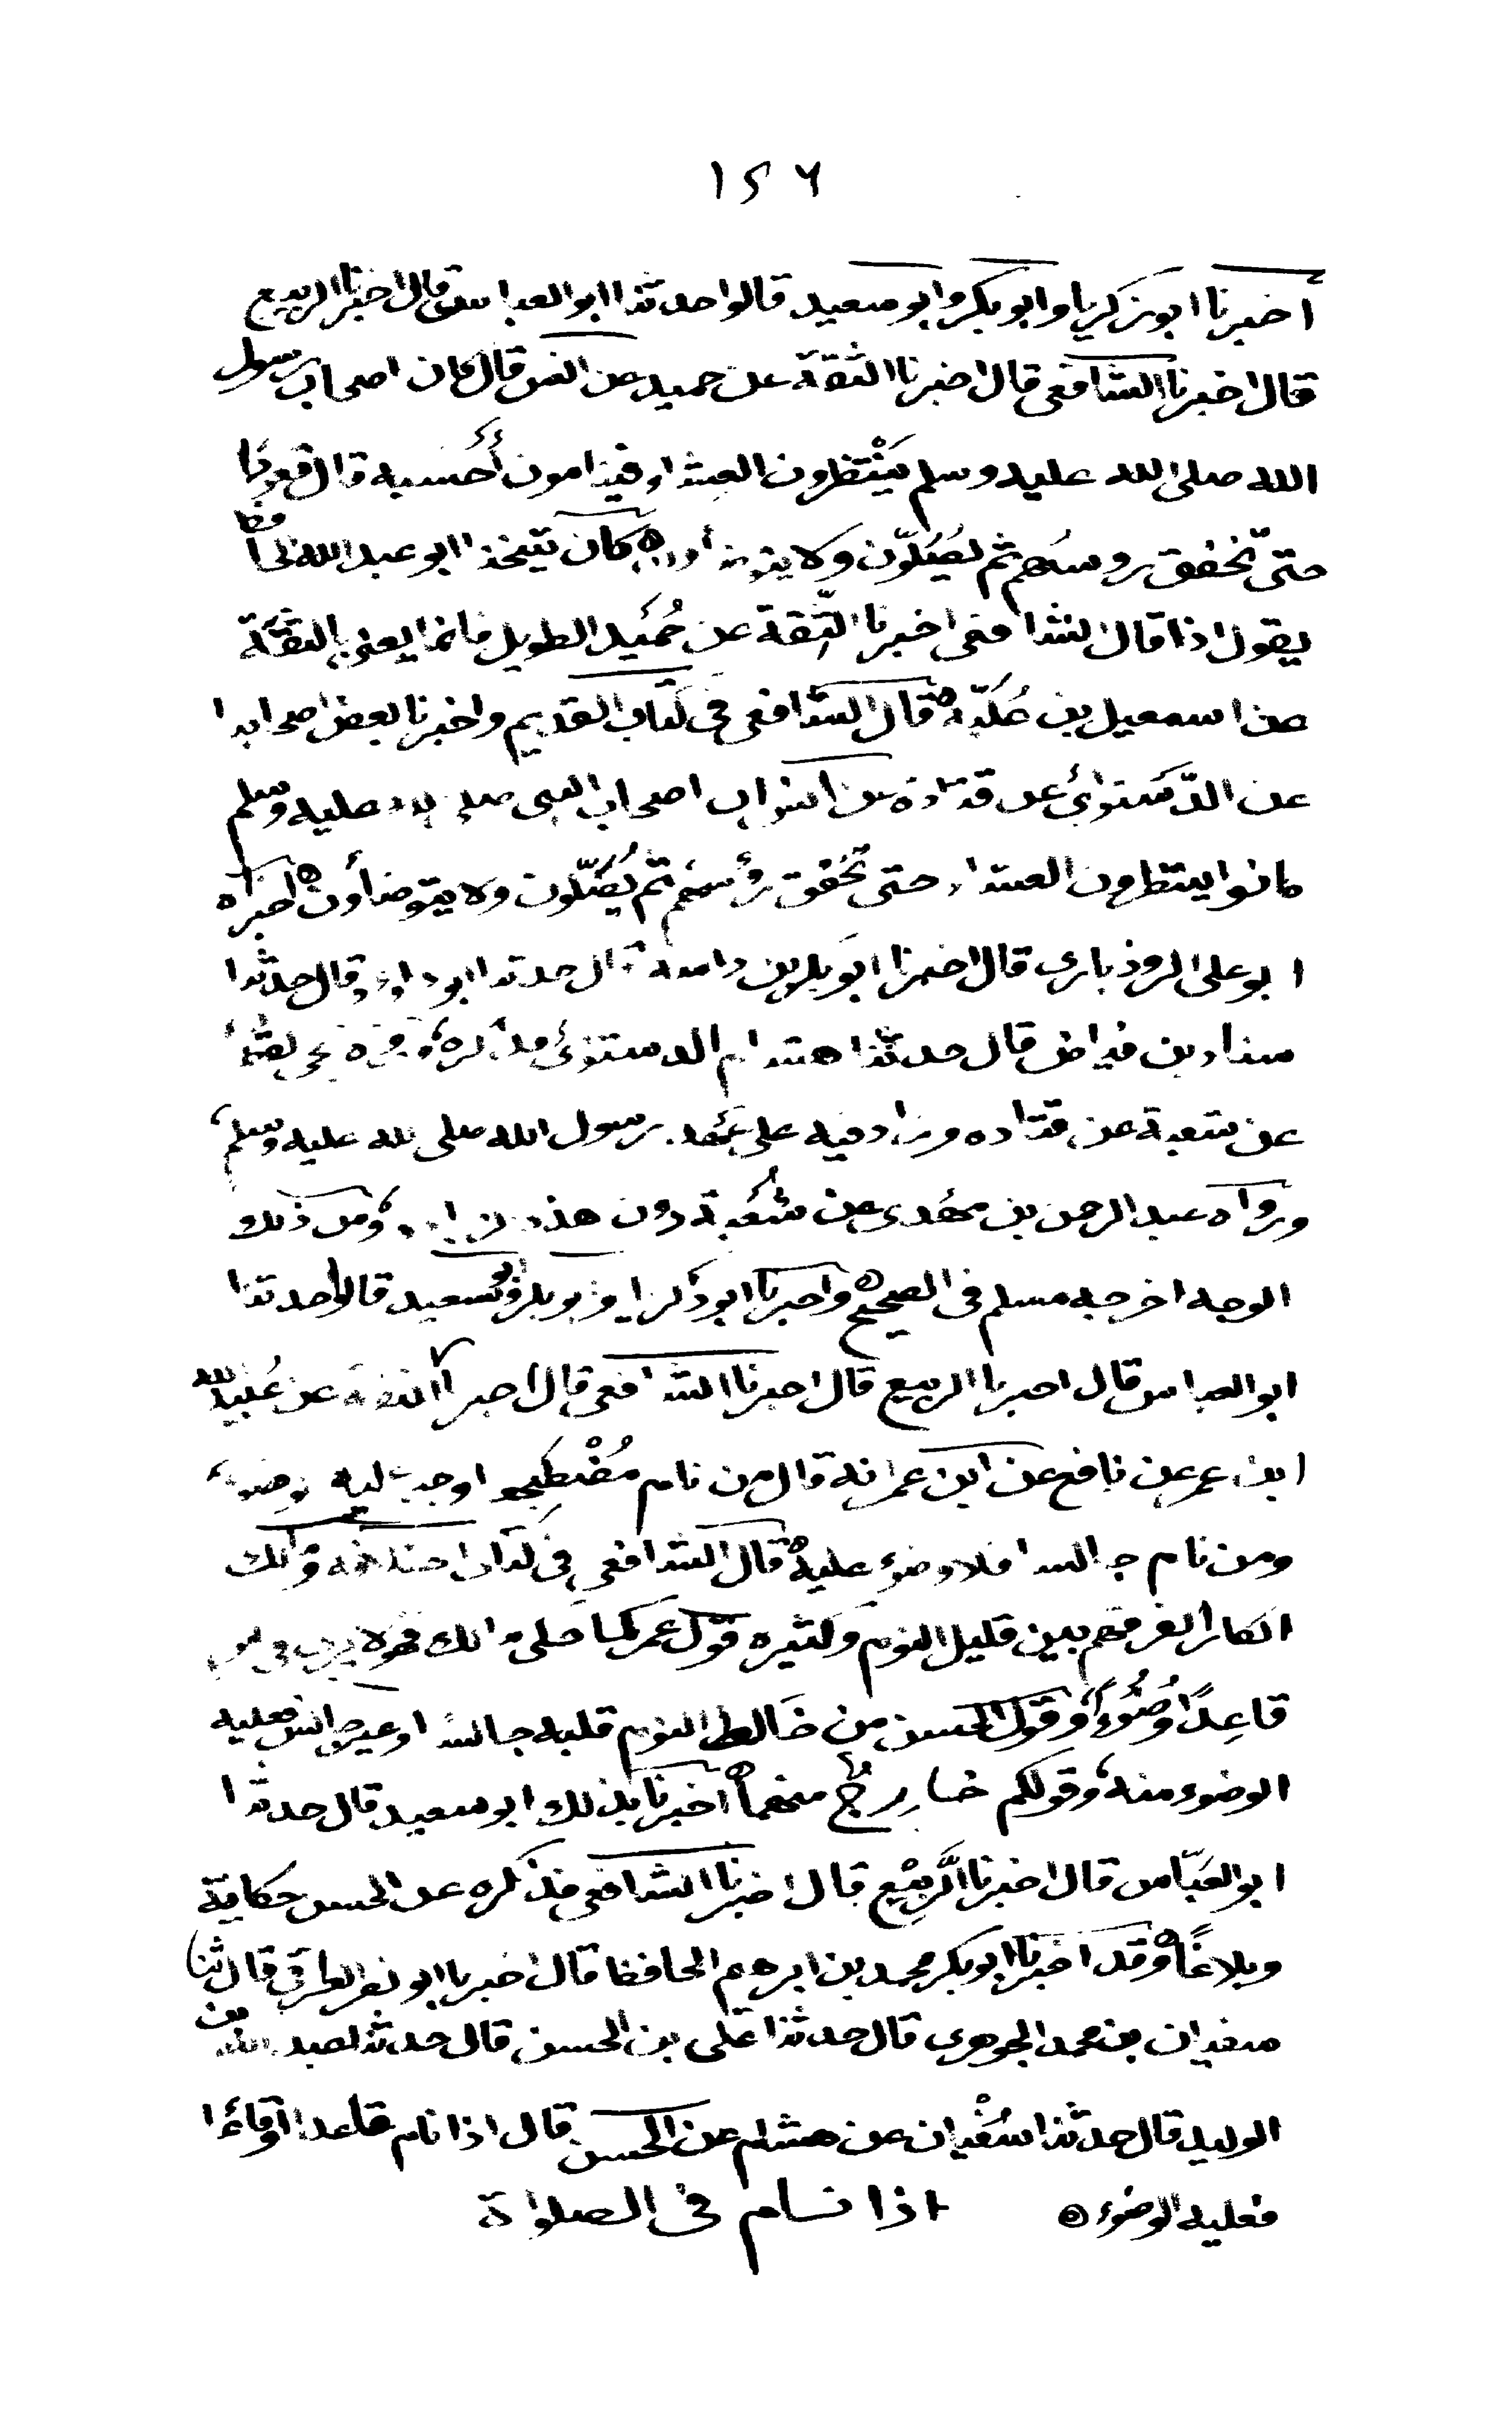 ١٢٦
أخبرنا ابو زكريا وابو بكر وابو سعيد قالوا حدثنا ابو العباس قال اخبرنا الربيع
قال اخبرنا الشافعي قال اخبرنا الثقة عن حميد عن انس قال كان اصحاب رسول
الله صلى الله عليه وسلم يَنْتظرون العشاء فينامون أحسبه قال قعودا
حتى تخفق روسهم ثم يصَلّون ولا كان شيخنا ابو عبد الله الحافظ
يقول اذا قال الشافعي اخبرنا الثّقة عن حُمَيد الطويل فانما يعني بالثقة
اسمعيل بن عُليّة ٥ قال الشافعي في كتاب القديم واخبرنا بعض اصحابنا
عن الدّستوائي عن قتادة عن انس ان اصحاب النبي صلى الله عليه وسلم
كانوا ينتظرون العشاء حتى تخفق رؤسهم ثم يُصَلّون ولا يتوضأون ٥ اخبرناه
ابو علي الروذباري قال اخبرنا ابو بكر بن داسة قال حدثنا ابو داود قال حدثنا
شاذ بن فياض قال حدثنا هشام الدستوائي
عن شعبة عن قتاده وزاد فيه على عهد رسول الله صلى الله عليه وسلم
ورواه عبد الرحمن بن مهدي عن شُعْبة دون هذه ومن ذلك
الوجه اخرجه مسلم في الصحيح ٥ واخبرنا ابو زكريا وابو بكر وابو سعيد قالوا حدثنا
ابو العباس قال اخبرنا الربيع قال اخبرنا الشافعي قال اخبرنا الثقة عن عُبيد الله
ابن عمر عن نافع عن ابن عمر انه قال من نام مُضْطجعا وجب عليه الوضوء
ومن نام جالسا فلا وضوء عليه ٥ قال الشافعي في كتاب
قليل النوم وكثيره قول عمر كما حكى مالك فهو لا يرى في
قاعِدًا وُضُوءًا وقول الحسن من خَالط النوم قلبه جالسًا او غير جالس فعليه
الوضوء منه وقولكم خارِجٌ منهما ٥ اخبرنا بذلك ابو سعيد قال حدثنا
ابو العَبّاس قال اخبرنا الرَّبِيْع قال اخبرنا الشافعي فذكره عن الحسن حكاية
وبلاغًا ٥ وقد اخبرنا ابو بكر محمد بن ابرهيم الحافظ قال اخبرنا ابو نصر العراقي قال ثنا
سفيان بن محمد الجوهري قال حدثنا علي بن الحسن قال حدثنا عبد الله بن
الوليد قال حدثنا سُفْيان عن هشام عن الحسن قال اذا نام قاعدا او قائما
فعليه الوضوء ٥ اذا نام في الصلواة